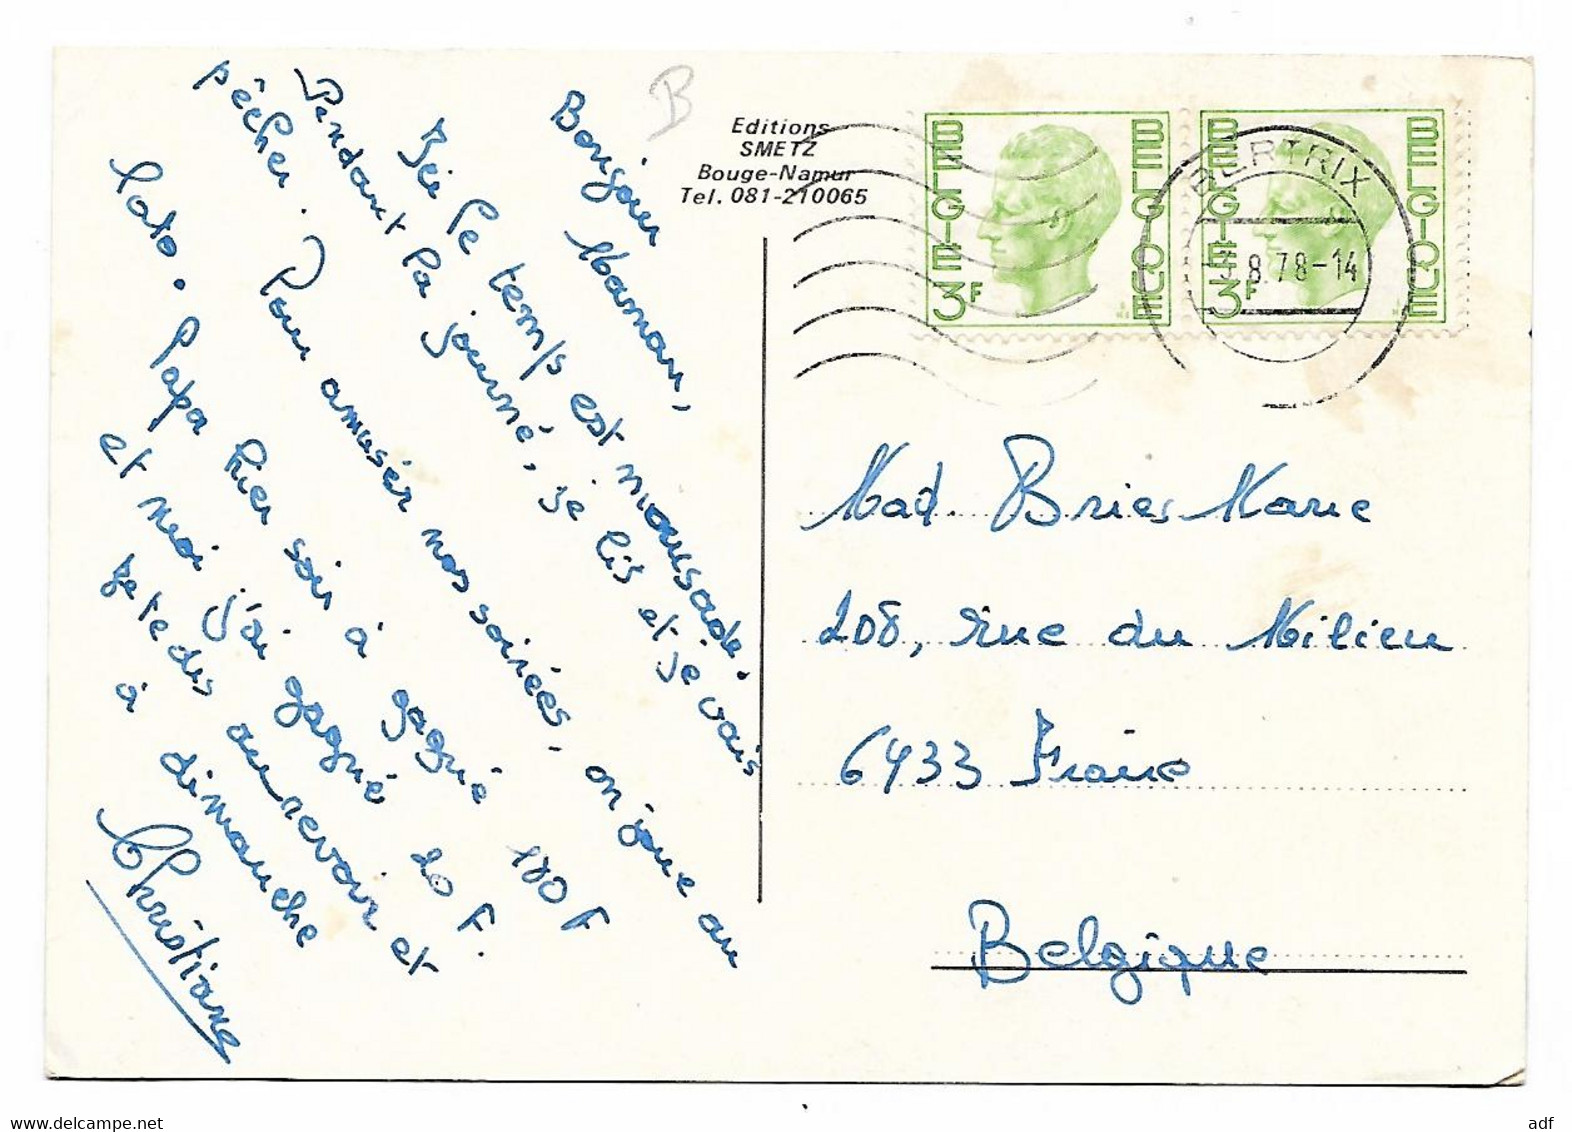 Bonjour Maman,
Ici le temps est maussade.
Pendant la journé, je lis et je vais
pêcher. Pour amusér nos soirées, on joue au
loto. Papa hier soir à gagné 100 F
et moi j'ai gagné 20 F.
Je te dis au revoir et
à dimanche
Christiane
B
Editions
SMETZ
Bouge-Namur
Tel. 081-210065
BELGIE BELGIQUE
3F
BELGIE BELGIQUE
3F
BERTRIX
8.78-14
Mad. Bries Marie
208, rue du Milieu
6433
Belgique
adf